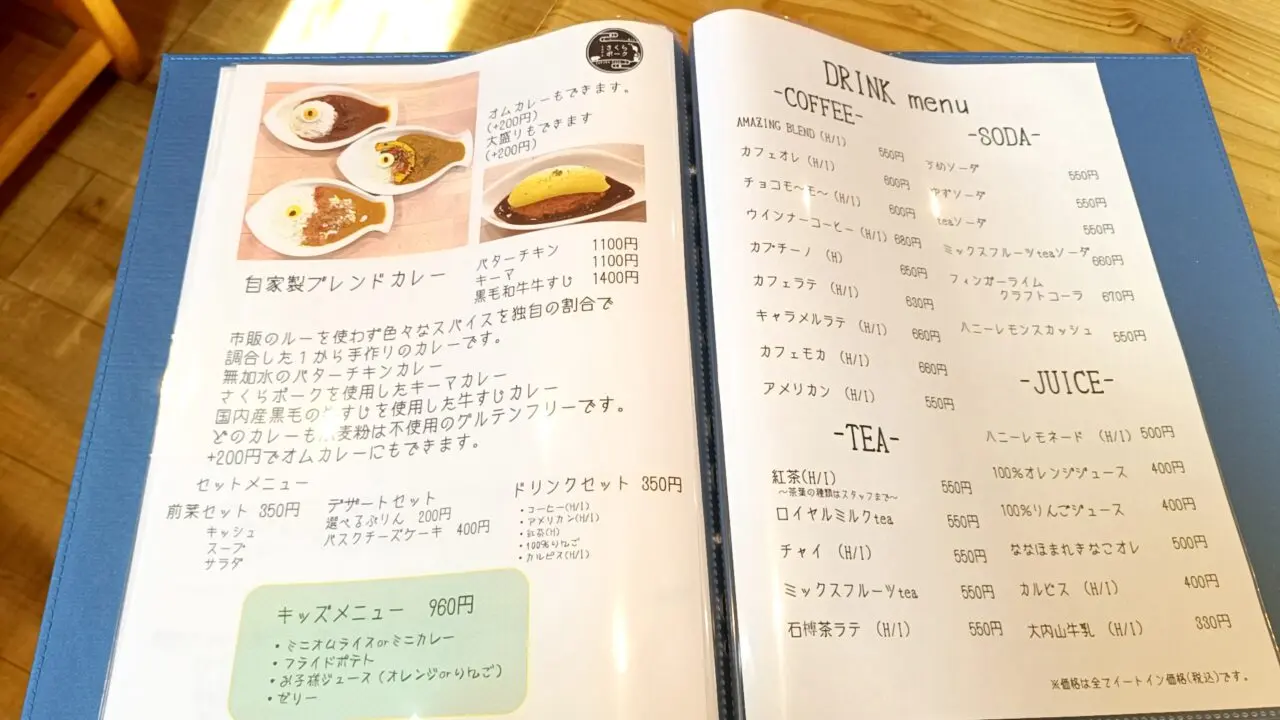 さくら
ポーク
オムカレーもできます。
(+200円)
大盛りもできます
(+200円)
自家製ブレンドカレー
バターチキン 1100円
キーマ 1100円
黒毛和牛牛すじ 1400円
市販のルーを使わず色々なスパイスを独自の割合で
調合した1から手作りのカレーです。
無加水のバターチキンカレー
さくらポークを使用したキーマカレー
国内産黒毛の すじを使用した牛すじカレー
どのカレーも 麦粉は不使用のグルテンフリーです。
+200円でオムカレーにもできます。
セットメニュー
前菜セット 350円
キッシュ
スープ
サラダ
デザートセット
選べるぷりん 200円
バスクチーズケーキ 400円
ドリンクセット 350円
・コーヒー(H/I)
・アメリカン(H/I)
・紅茶(H)
・100%りんご
・カルピス(H/I)
キッズメニュー 960円
・ミニオムライスorミニカレー
・フライドポテト
・お子様ジュース(オレンジorりんご)
・ゼリー
DRINK menu
-COFFEE-
AMAZING BLEND (H/I) 550円
カフェオレ (H/I) 600円
チョコモ～モ～ (H/I) 600円
ウインナーコーヒー (H/I) 680円
カプチーノ (H) 650円
カフェラテ (H/I) 630円
キャラメルラテ (H/I) 660円
カフェモカ (H/I) 660円
アメリカン (H/I) 550円
-TEA-
紅茶(H/I) 550円
～茶葉の種類はスタッフまで～
ロイヤルミルクtea 550円
チャイ (H/I) 550円
ミックスフルーツtea 550円
石榑茶ラテ (H/I) 550円
-SODA-
うめソーダ 550円
ゆずソーダ 550円
teaソーダ 550円
ミックスフルーツteaソーダ 660円
フィンガーライム
クラフトコーラ 670円
ハニーレモンスカッシュ 550円
-JUICE-
ハニーレモネード (H/I) 500円
100%オレンジジュース 400円
100%りんごジュース 400円
ななほまれきなこオレ 500円
カルピス (H/I) 400円
大内山牛乳 (H/I) 330円
※価格は全てイートイン価格(税込)です。